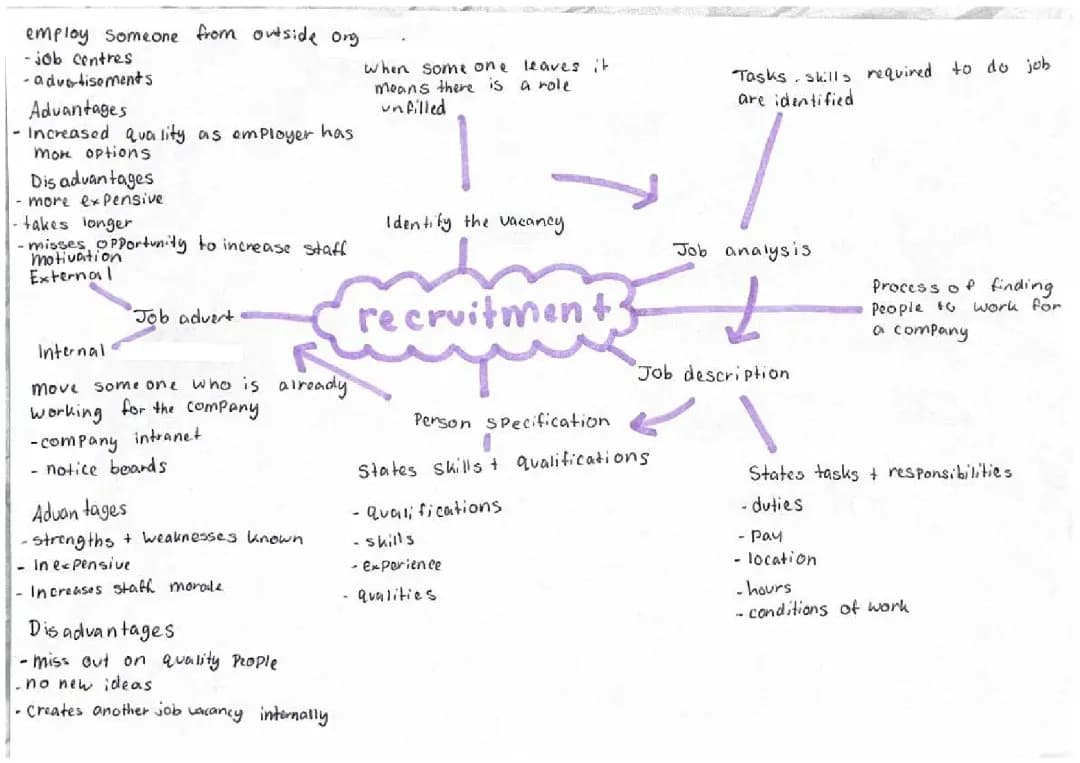 employ someone from outside org
- job centres
- advertisements
Advantages
- Increased quality as employer has
more options
Disadvantages
- more expensive
- takes longer
- misses opportunity to increase staff
motivation
External
Job advert
Internal
move someone who is already
working for the company
- company intranet
- notice boards
Advantages
- strengths + weaknesses known
- Inexpensive
- Increases staff morale
Disadvantages
- miss out on quality people
- no new ideas
- Creates another job vacancy internally
when someone leaves it
means there is a role
unfilled
Identify the vacancy
recruitment
Person specification
States skills + qualifications
- qualifications
- skills
- experience
- qualities
Tasks . skills required to do job
are identified
Job analysis
Process of finding
people to work for
a company
Job description
States tasks + responsibilities
- duties
- pay
- location
- hours
- conditions of work